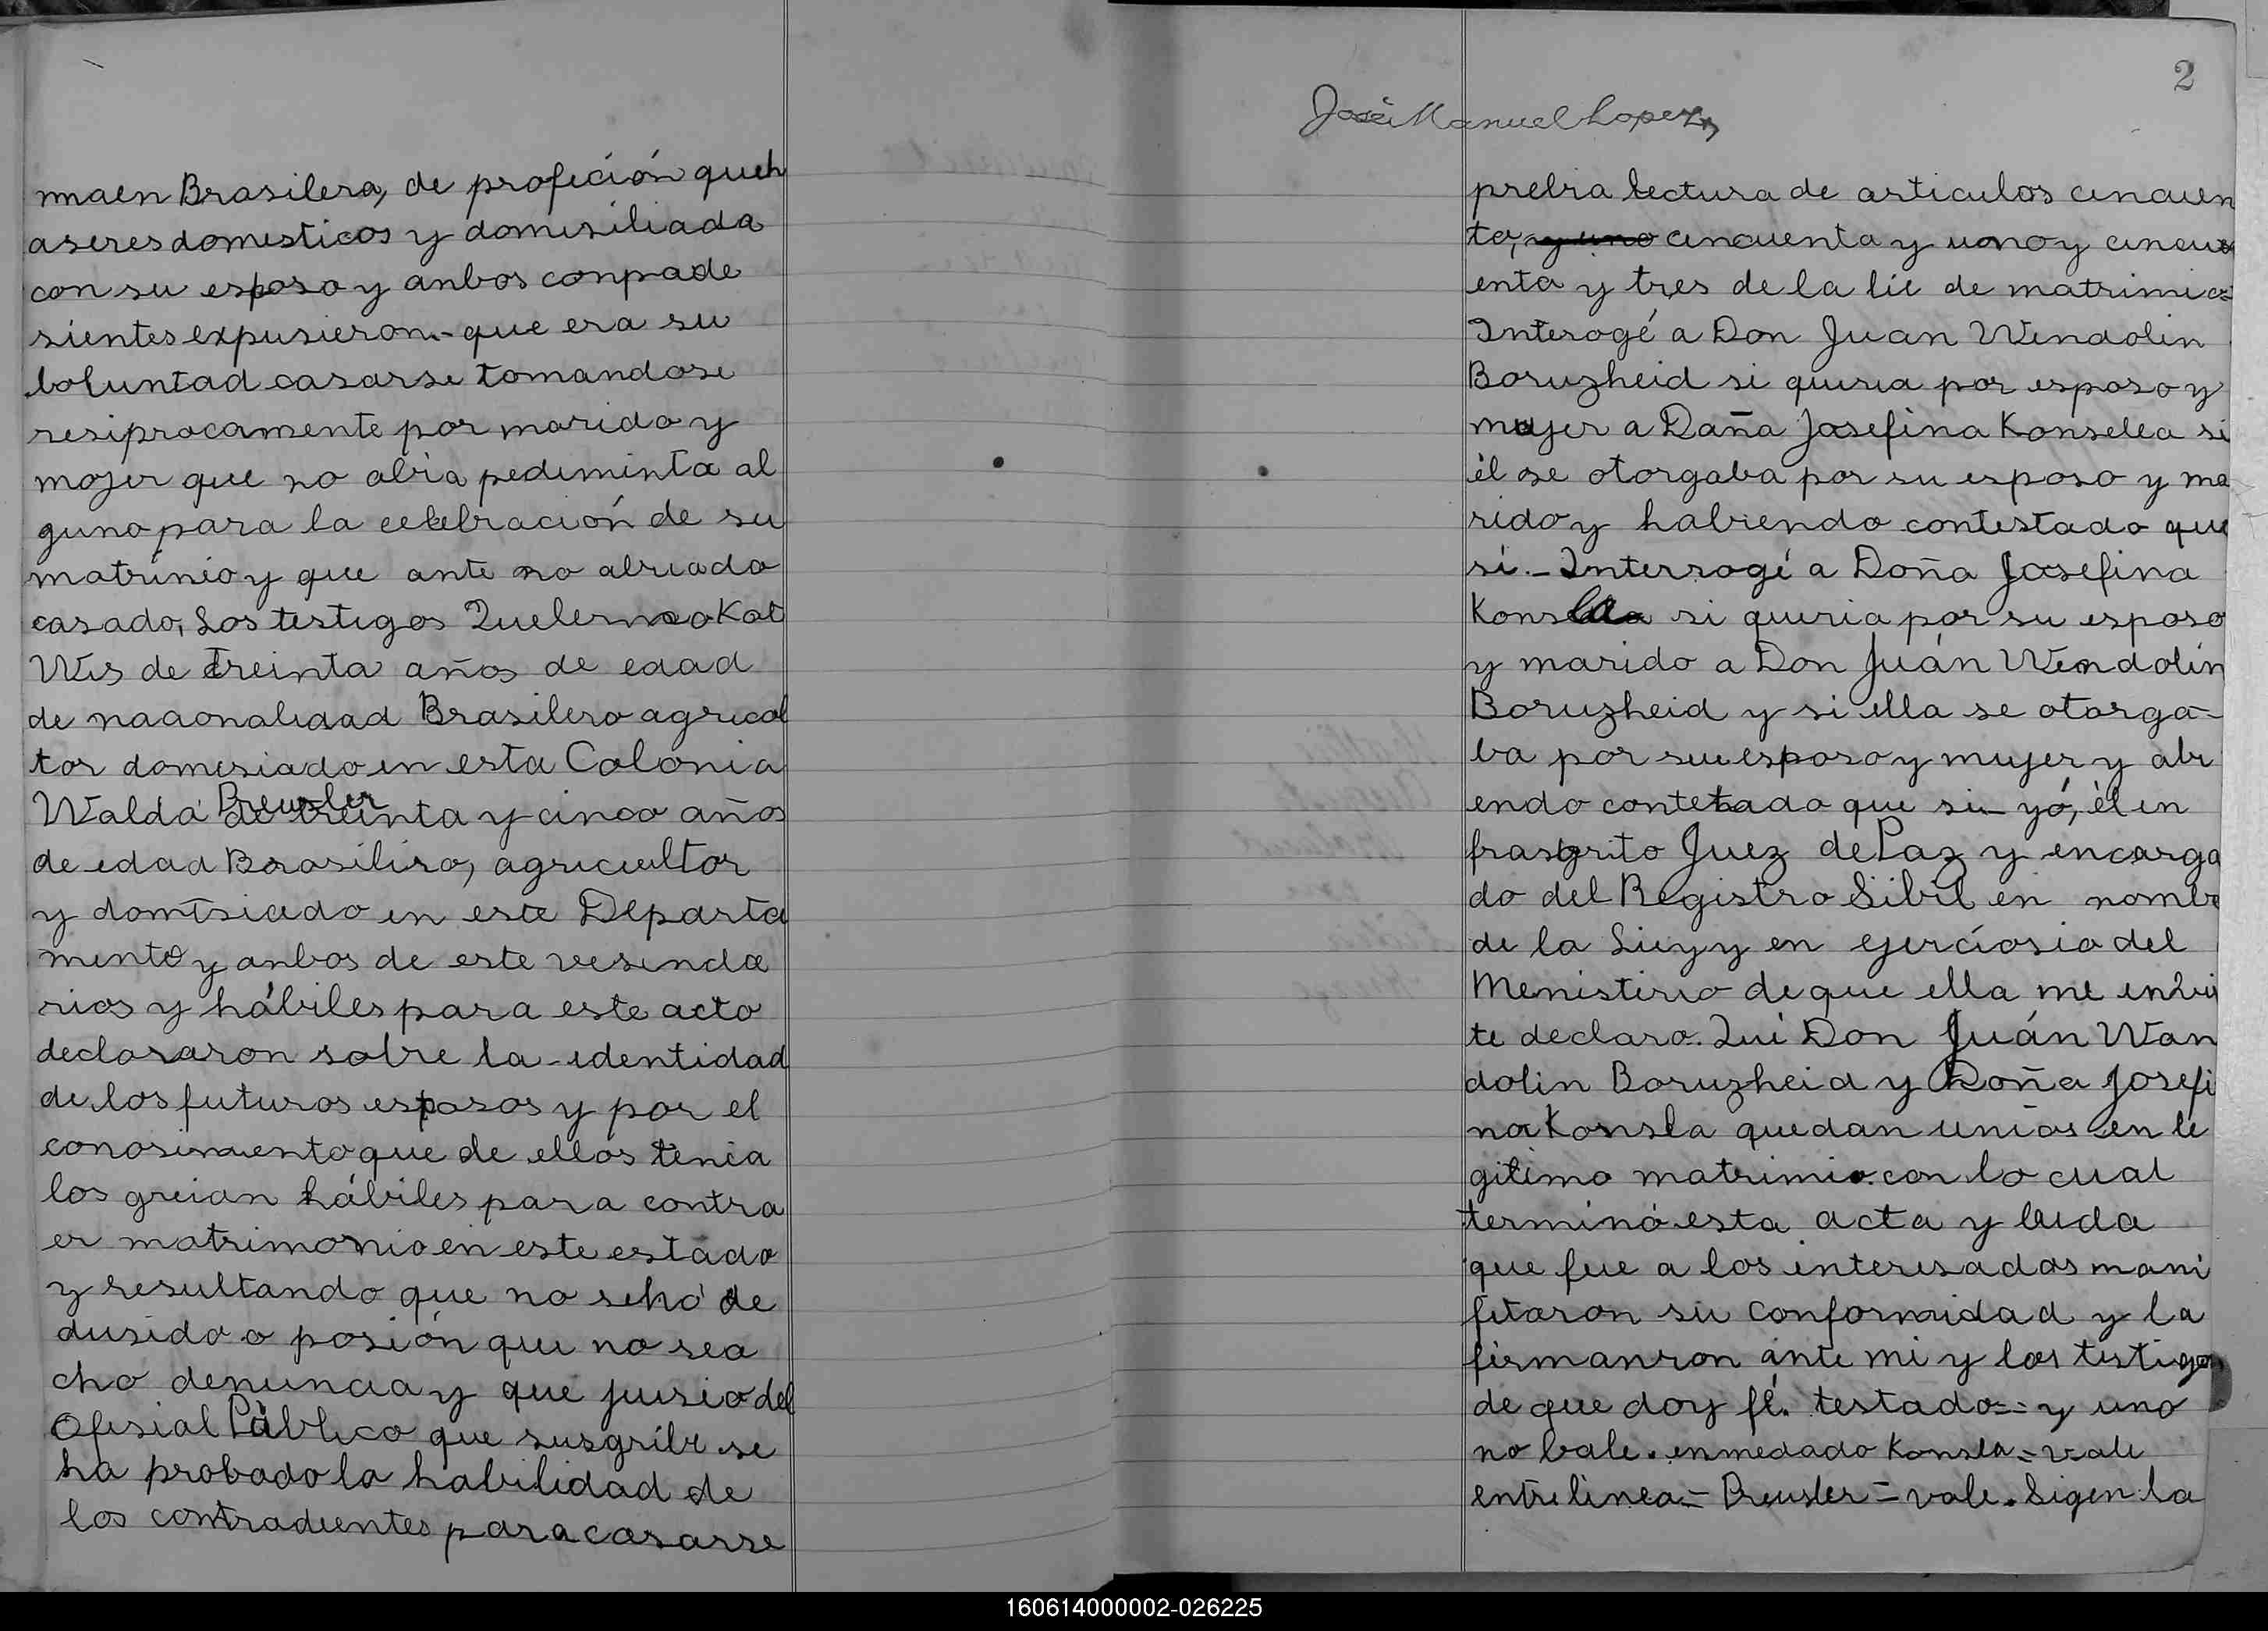 maen Brasilera, de profeción queh
aseres domesticos y domisiliada
con su esposo y anbos conpade
sientes expusieron.- que era su
boluntad casarse tomandose
resiprocamente por marido y
mojer que no abia pediminta al
guno para la celebración de su
matrinio y que ante no abriado
casado, Los testigos Quelermo Kot
Wis de treinta años de edad
de nacionalidad Brasilero agricol
tor domisiado en esta Colonia
Walda Preusler de treinta y cinco años
de edad Brasiliro, agricultor
y domisiado en este Departa
mento y anbos de este vesinda
rios y hábiles para este acto
declararon sobre la identidad
de los futuros esposos y por el
conosimiento que de ellos tenia
los greian hábiles para contra
er matrimonio en este estado
y resultando que no seha de
dusido o posión que no sea
cho denuncia y que jusio del
Ofisial Público que susgribe se
ha probado la habilidad de
los contradientes para casarse
2
José Manuel Lopez
prebia lectura de articulos cincuen
ta, y uno cincuenta y uno y cincu
enta y tres de la lie de matrimio=
Interogé a Don Juan Wendolin
Boruzheid si quiria por esposo y
mujer a Daña Josefina Konselea si
él se otorgaba por su esposo y ma
rido y habiendo contestado que
si.- Interrogé a Doña Josefina
Konsla si quiria por su esposo
y marido a Don Juán Wendolin
Boruzheid y si ella se otorga-
ba por su esposo y mujer y abi
endo contetado que si- yó, él in
frasgrito Juez de Paz y encarga
do del Registro Sibil en nombre
de la Lieyy en ejerciosio del
Menistirio de que ella me enbis
te declaro. Qui Don Juán Wan
dolin Boruzheid y Doña Josefi
na Konsla quedan unios en le
gitimo matrimio. con lo cual
terminó esta acta y leida
que fue a los interisados mani
fitaron su conformidad y la
firmanron ánte mi y los tistigos
de que doy fé. testado=: y uno
no bale. enmedado Konsla = vale
entrelinea = Preusler = vale. Sigen la
160614000002-026225